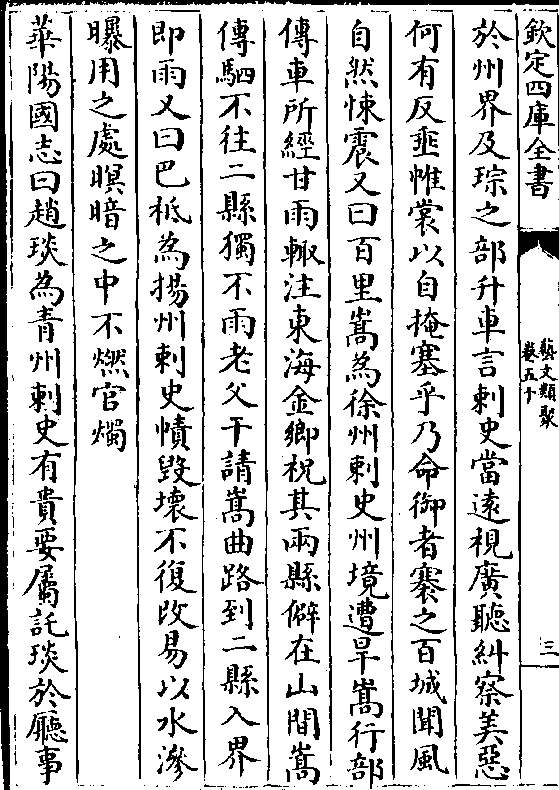 欽定四庫全書
藝文類聚
卷五十
三
於州界及琮之部升車言刺史當遠視廣聽糾察美惡
何有反垂帷裳以自掩塞乎乃命御者褰之百城聞風
自然悚震又曰百里嵩為徐州刺史州境遭旱嵩行部
傳車所經甘雨輙注東海金鄉祝其兩縣僻在山間嵩
傳駟不往二縣獨不雨老父干請嵩曲路到二縣入界
即雨又曰巴祗為揚州刺史幘毀壞不復改易以水滲
曝用之處暝暗之中不燃官燭
華陽國志曰趙琰為青州刺史有貴要屬託琰於廳事